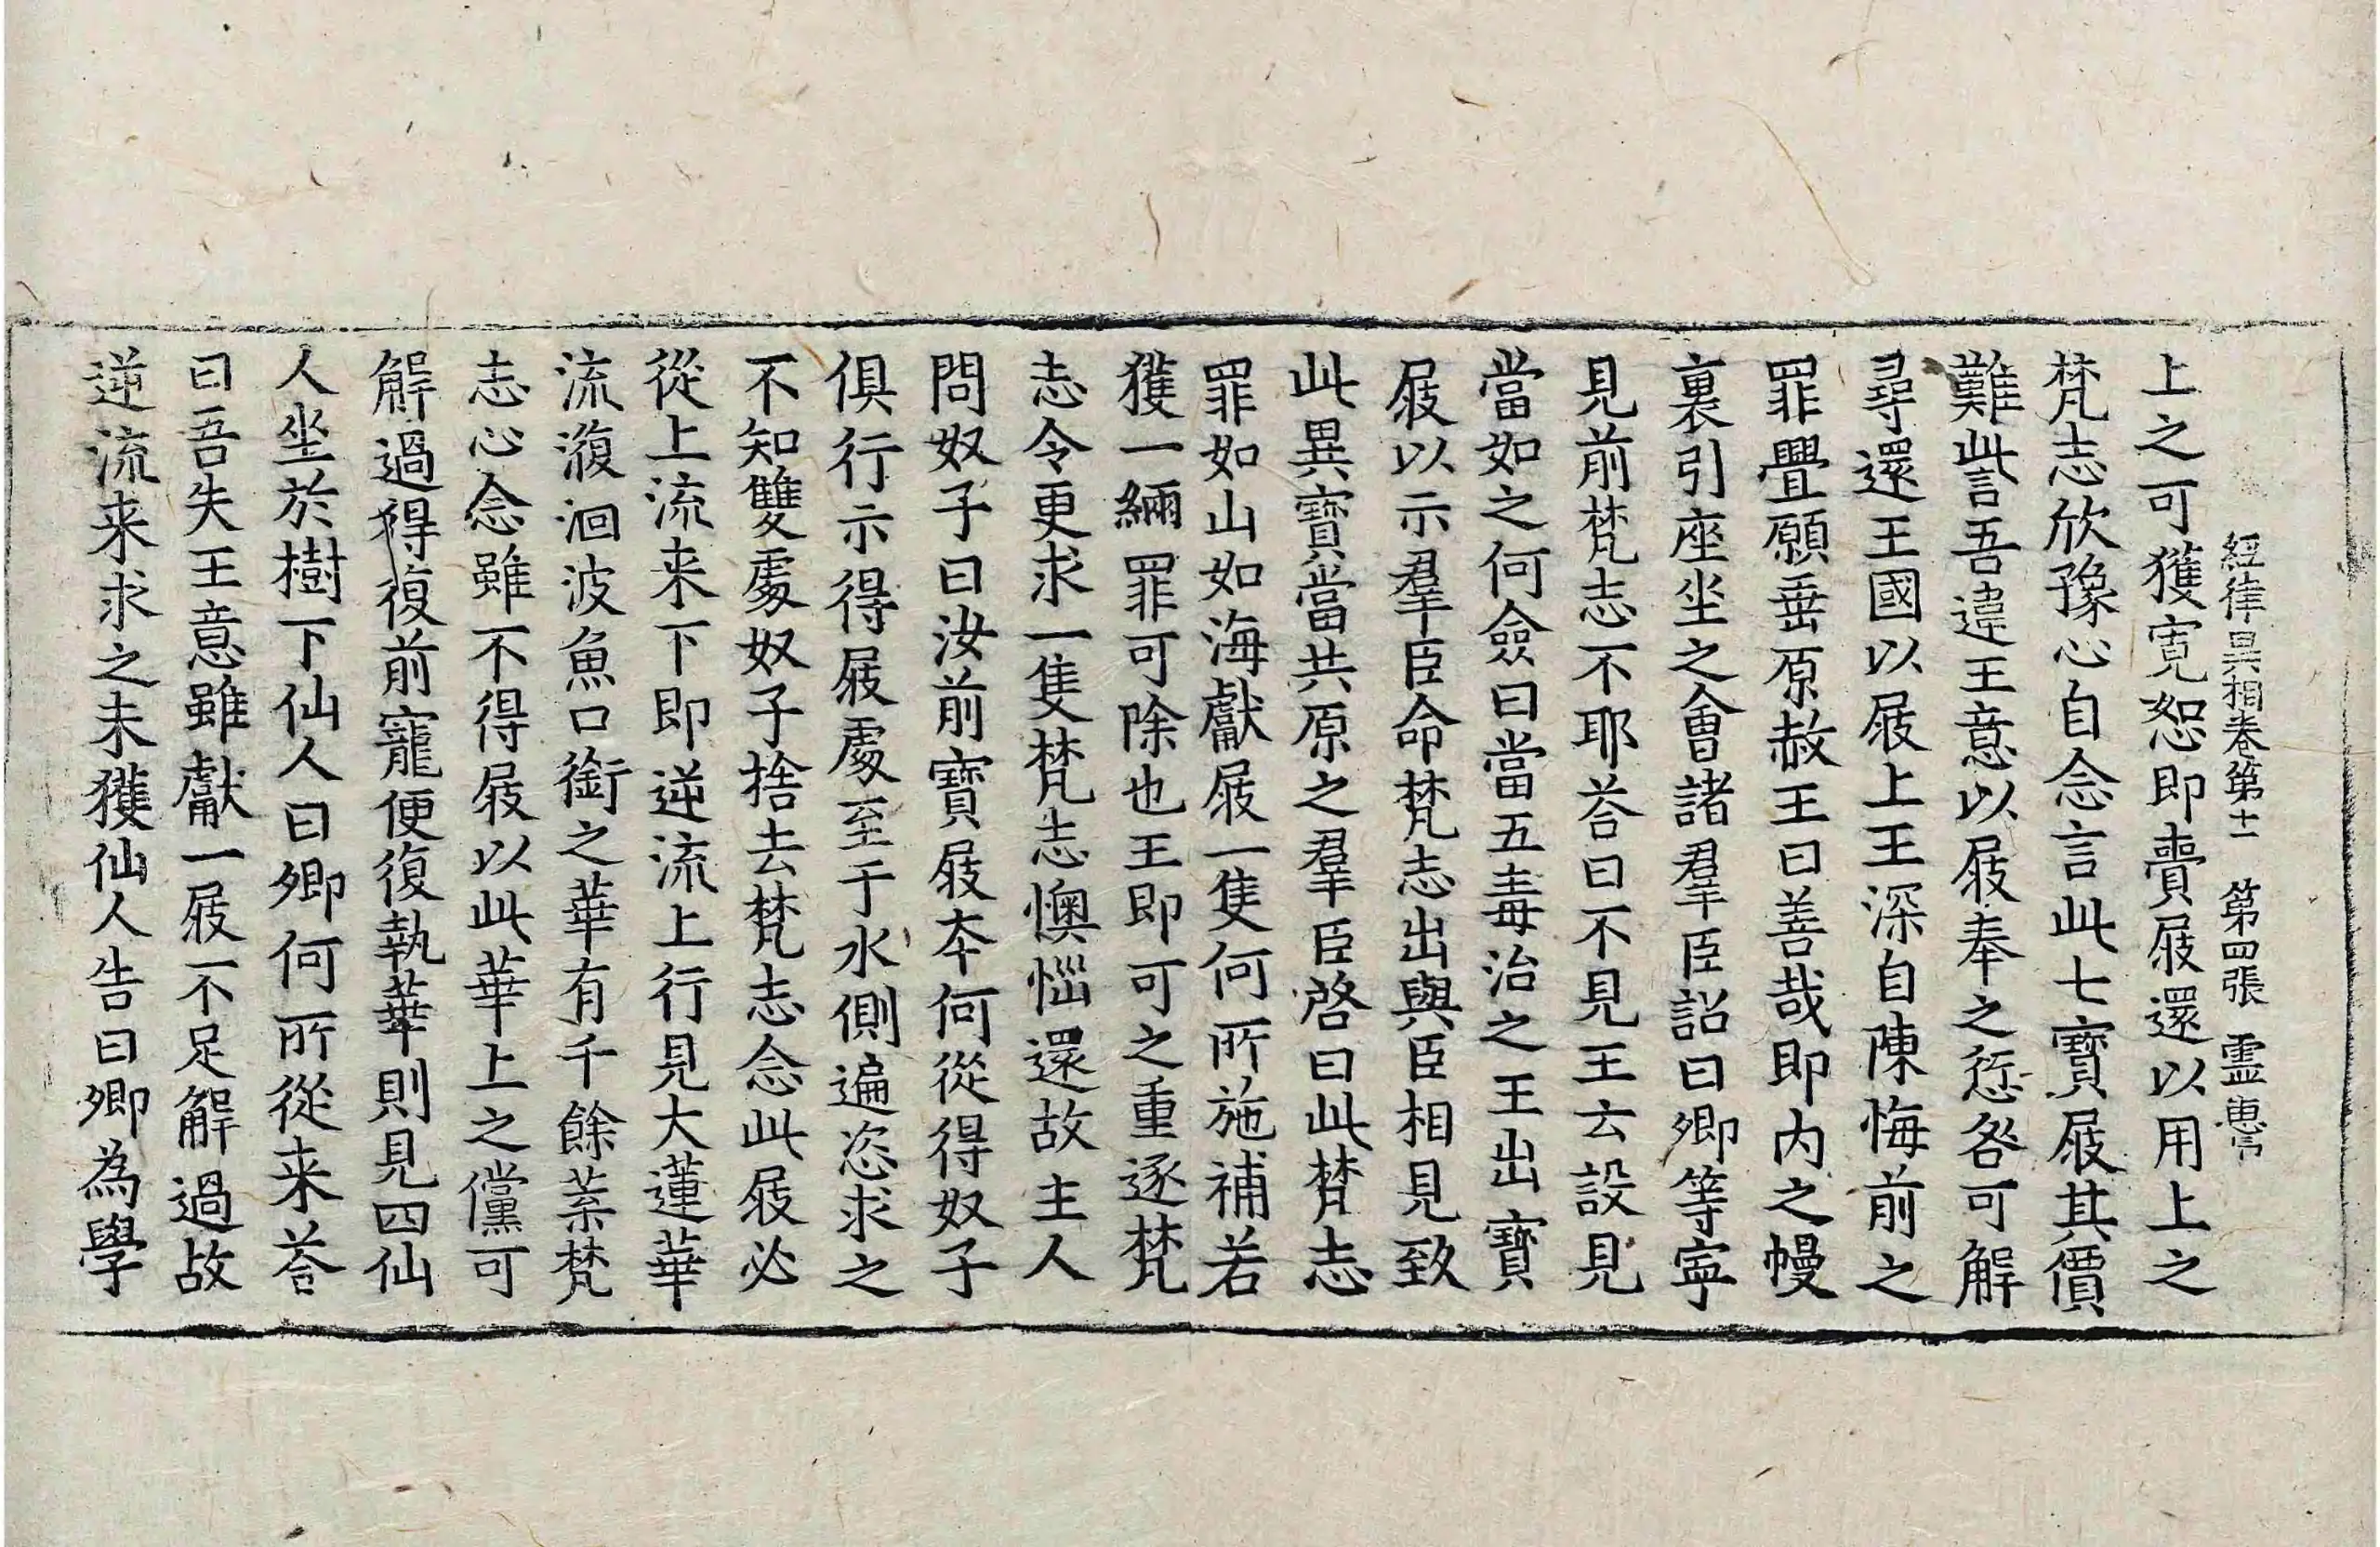 經律異相卷第十一 第四張 靈
上之可獲寛恕即賷屐還以用上之
梵志欣豫心自念言此七寶屐其價
難訾吾違王意以屐奉之愆咎可解
尋還王國以屐上王深自陳悔前之
罪舋願垂原赦王曰善哉即内之幔
裏引座坐之會諸羣臣詔曰卿等寧
見前梵志不耶荅曰不見王云設見
當如之何僉曰當五毒治之王出寶
屐以示羣臣命梵志出與臣相見致
此異寶當共原之羣臣啓曰此梵志
罪如山如海獻屐一隻何所施補若
獲一緉罪可除也王即可之重逐梵
志令更求一隻梵志懊惱還故主人
問奴子曰汝前寶屐本何從得奴子
俱行示得屐處至于水側遍恣求之
不知雙處奴子捨去梵志念此屐必
從上流来下即逆流上行見大蓮華
流澓洄波魚口銜之華有千餘葉梵
志心念雖不得屐以此華上之儻可
解過得復前寵便復執華則見四仙
人坐於樹下仙人曰卿何所從来荅
曰吾失王意雖獻一屐不足解過故
逆流来求之未獲仙人告曰卿為學